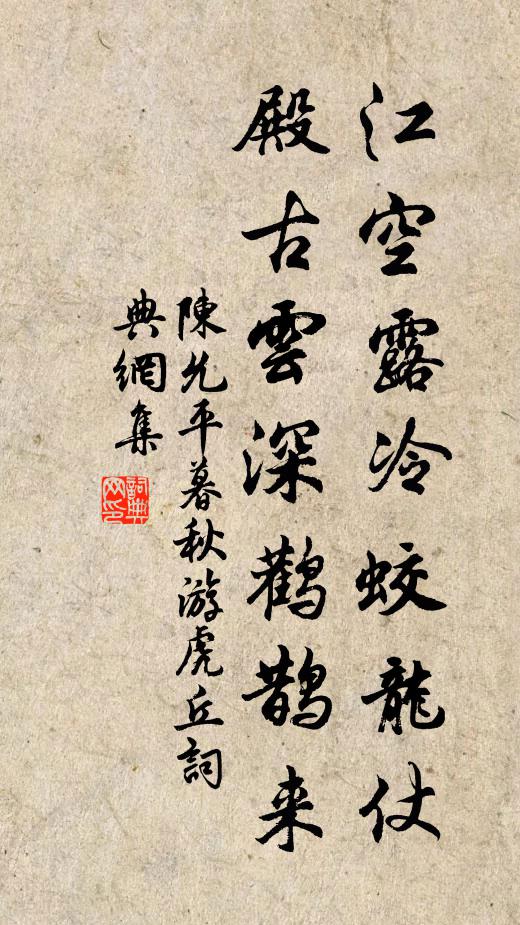 江空露冷蛟龍仗
殿古雲深鸛鵲来
陳允平暮秋游虎丘詞
典網集
詞典
网印